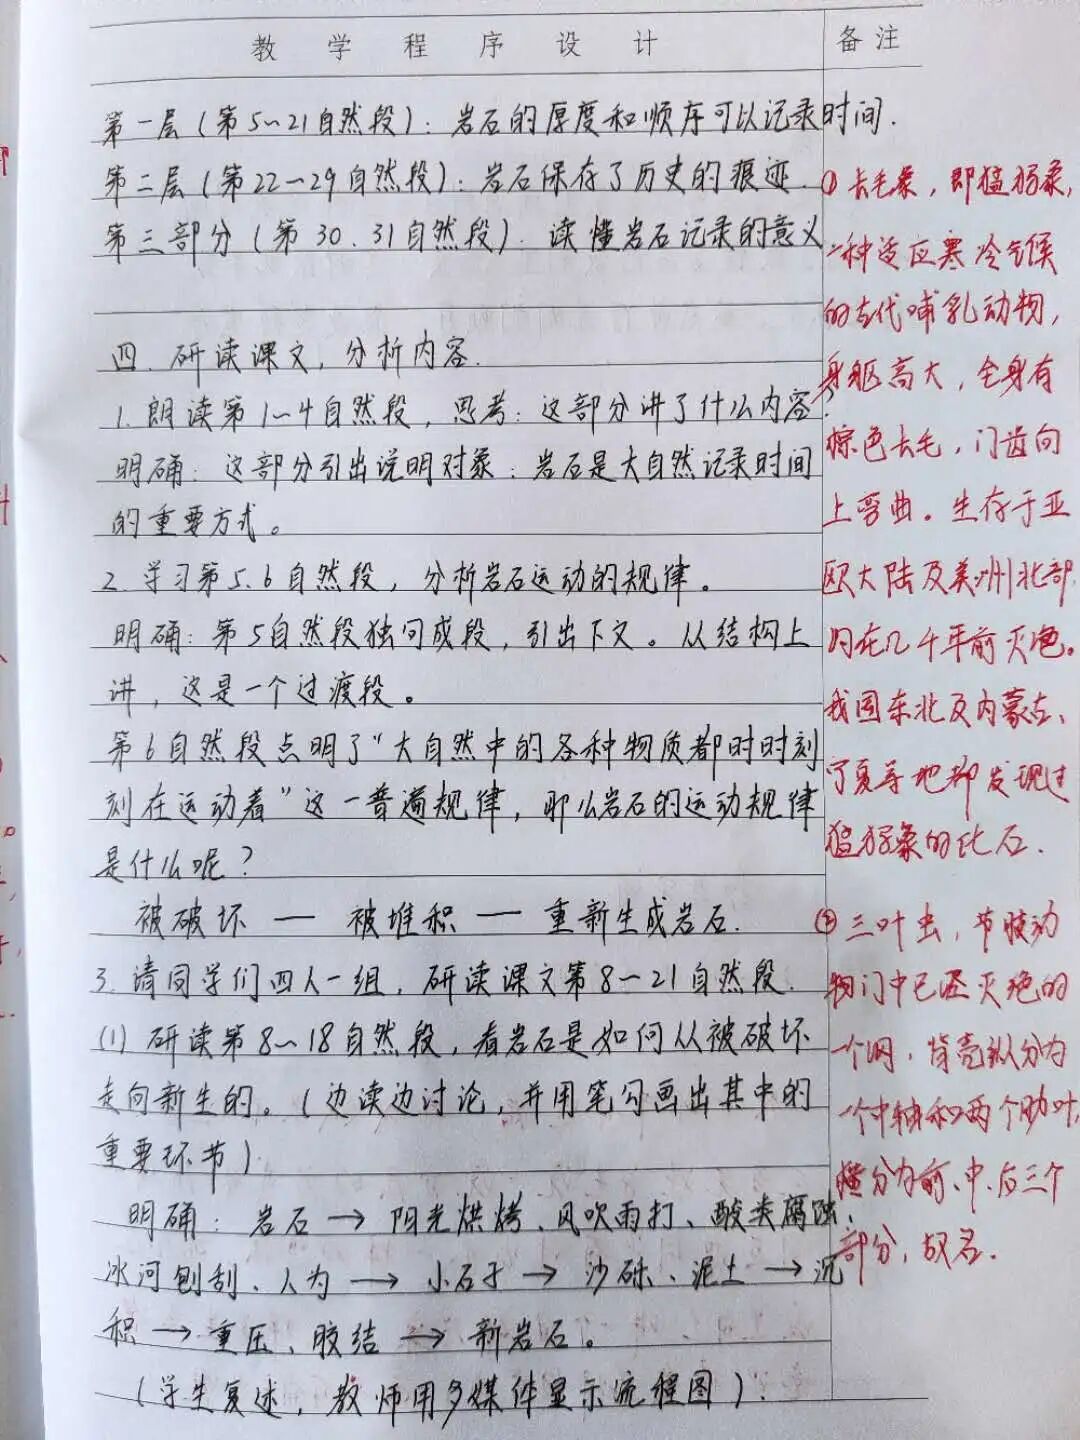 教学程序设计
备注
第一层(第5~21自然段):岩石的厚度和顺序可以记录时间.
第二层(第22~29自然段):岩石保存了历史的痕迹.
第三部分(第30.31自然段).读懂岩石记录的意义
四.研读课文,分析内容.
1.朗读第1~4自然段,思考:这部分讲了什么内容?
明确:这部分引出说明对象:岩石是大自然记录时间
的重要方式。
2.学习第5.6自然段,分析岩石运动的规律。
明确:第5自然段独句成段,引出下文。从结构上
讲,这是一个过渡段。
第6自然段点明了“大自然中的各种物质都时时刻
刻在运动着”这一普遍规律,那么岩石的运动规律
是什么呢?
被破坏—被堆积—重新生成岩石.
3.请同学们四人一组,研读课文第8~21自然段.
(1)研读第8~18自然段,看岩石是如何从被破坏
走向新生的。(边读边讨论,并用笔勾画出其中的
重要环节)
明确:岩石→阳光烘烤、风吹雨打、酸类腐蚀、
冰河刨刮、人为→小石子→沙砾、泥土→沉
积→重压、胶结→新岩石。
(学生复述,教师用多媒体显示流程图).
①长毛象,即猛犸象,
一种适应寒冷气候
的古代哺乳动物,
身躯高大,全身有
棕色长毛,门齿向
上弯曲。生存于亚
欧大陆及美洲北部,
约在几千年前灭绝。
我国东北及内蒙古、
宁夏等地都发现过
猛犸象的化石.
②三叶虫,节肢动
物门中已灭绝的
一个纲,背壳纵分为
一个中轴和两个肋叶,
横分为前、中、后三个
部分,故名.